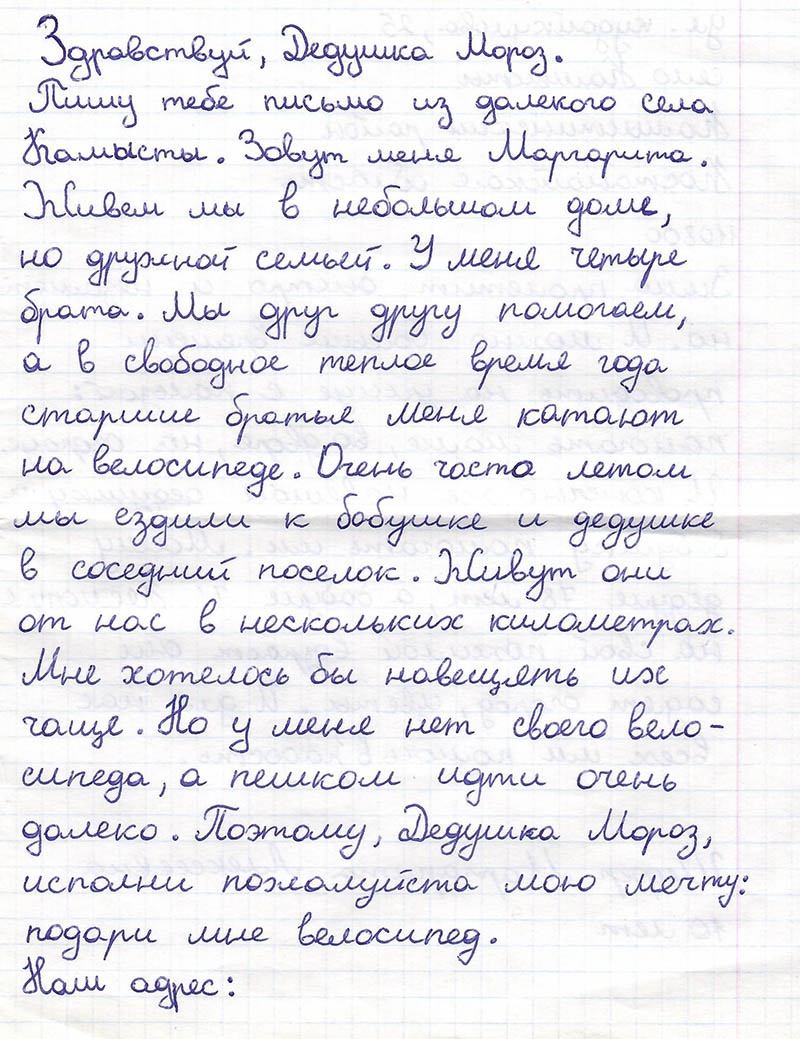 Здравствуй, Дедушка Мороз.
Пишу тебе письмо из далекого села
Камысты. Зовут меня Маргарита.
Живем мы в небольшом доме,
но дружной семьей. У меня четыре
брата. Мы друг другу помогаем,
а в свободное теплое время года
старшие братья меня катают
на велосипеде. Очень часто летом
мы ездили к бабушке и дедушке
в соседний поселок. Живут они
от нас в нескольких километрах.
Мне хотелось бы навещять их
чаще. Но у меня нет своего вело-
сипеда, а пешком идти очень
далеко. Поэтому, Дедушка Мороз,
исполни пожалуйста мою мечту:
подари мне велосипед.
Наш адрес: